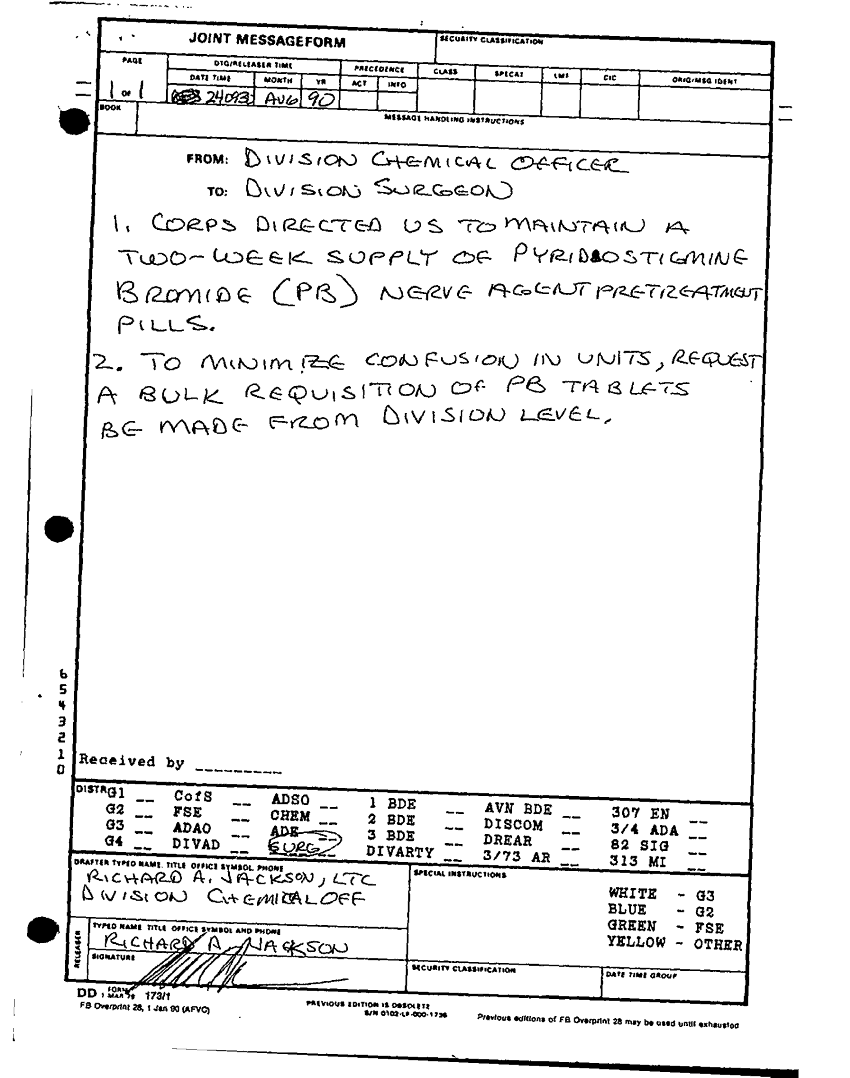 JOINT MESSAGEFORM
SECURITY CLASSIFICATION
PAGE
DTG/RELEASER TIME
PRECEDENCE
CLASS
SPECAT
LMF
CIC
ORIG/MSG IDENT
DATE TIME
MONTH
YR
ACT
INFO
1 OF 1
24093
AUG
90
BOOK
MESSAGE HANDLING INSTRUCTIONS
FROM: DIVISION CHEMICAL OFFICER
TO: DIVISION SURGEON
1. CORPS DIRECTED US TO MAINTAIN A
TWO-WEEK SUPPLY OF PYRIDOSTIGMINE
BROMIDE (PB) NERVE AGENT PRETREATMENT
PILLS.
2. TO MINIMIZE CONFUSION IN UNITS, REQUEST
A BULK REQUISITION OF PB TABLETS
BE MADE FROM DIVISION LEVEL.
6
5
4
3
2
1
0
Received by _________
DISTR
G1 __ CofS __ ADSO __ 1 BDE __ AVN BDE __ 307 EN __
G2 __ FSE __ CHEM __ 2 BDE __ DISCOM __ 3/4 ADA __
G3 __ ADAO __ ADE __ 3 BDE __ DREAR __ 82 SIG __
G4 __ DIVAD __ SURG DIVARTY __ 3/73 AR __ 313 MI __
DRAFTER TYPED NAME, TITLE OFFICE SYMBOL PHONE
RICHARD A. JACKSON, LTC
DIVISION CHEMICAL OFF
SPECIAL INSTRUCTIONS
WHITE - G3
BLUE - G2
GREEN - FSE
YELLOW - OTHER
RELEASER
TYPED NAME TITLE OFFICE SYMBOL AND PHONE
RICHARD A. JACKSON
SIGNATURE
SECURITY CLASSIFICATION
DATE TIME GROUP
DD FORM 1 MAR 79 173/1
FB Overprint 28, 1 Jan 90 (AFVC)
PREVIOUS EDITION IS OBSOLETE
S/N 0102-LF-000-1736
Previous editions of FB Overprint 28 may be used until exhausted